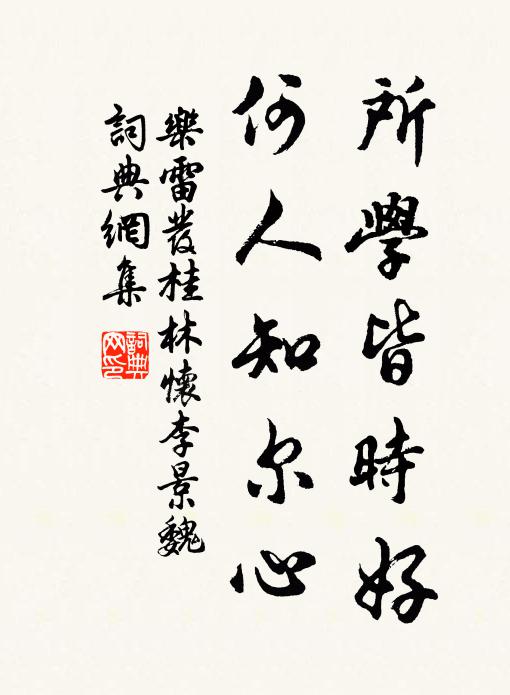 所學皆時好
何人知尔心
樂雷發桂林懷李景魏
詞典網集
詞典網印